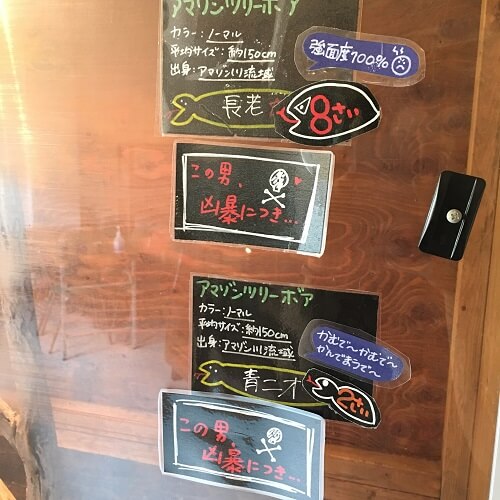 アマゾンツリーボア
カラー：ノーマル
平均サイズ：約150cm
出身：アマゾン川流域
強面度100%
長老
8さい
この男、
凶暴につき…
アマゾンツリーボア
カラー：ノーマル
平均サイズ：約150cm
出身：アマゾン川流域
かむで〜かむで〜
かんでまうで〜
青二才
2さい
この男、
凶暴につき…